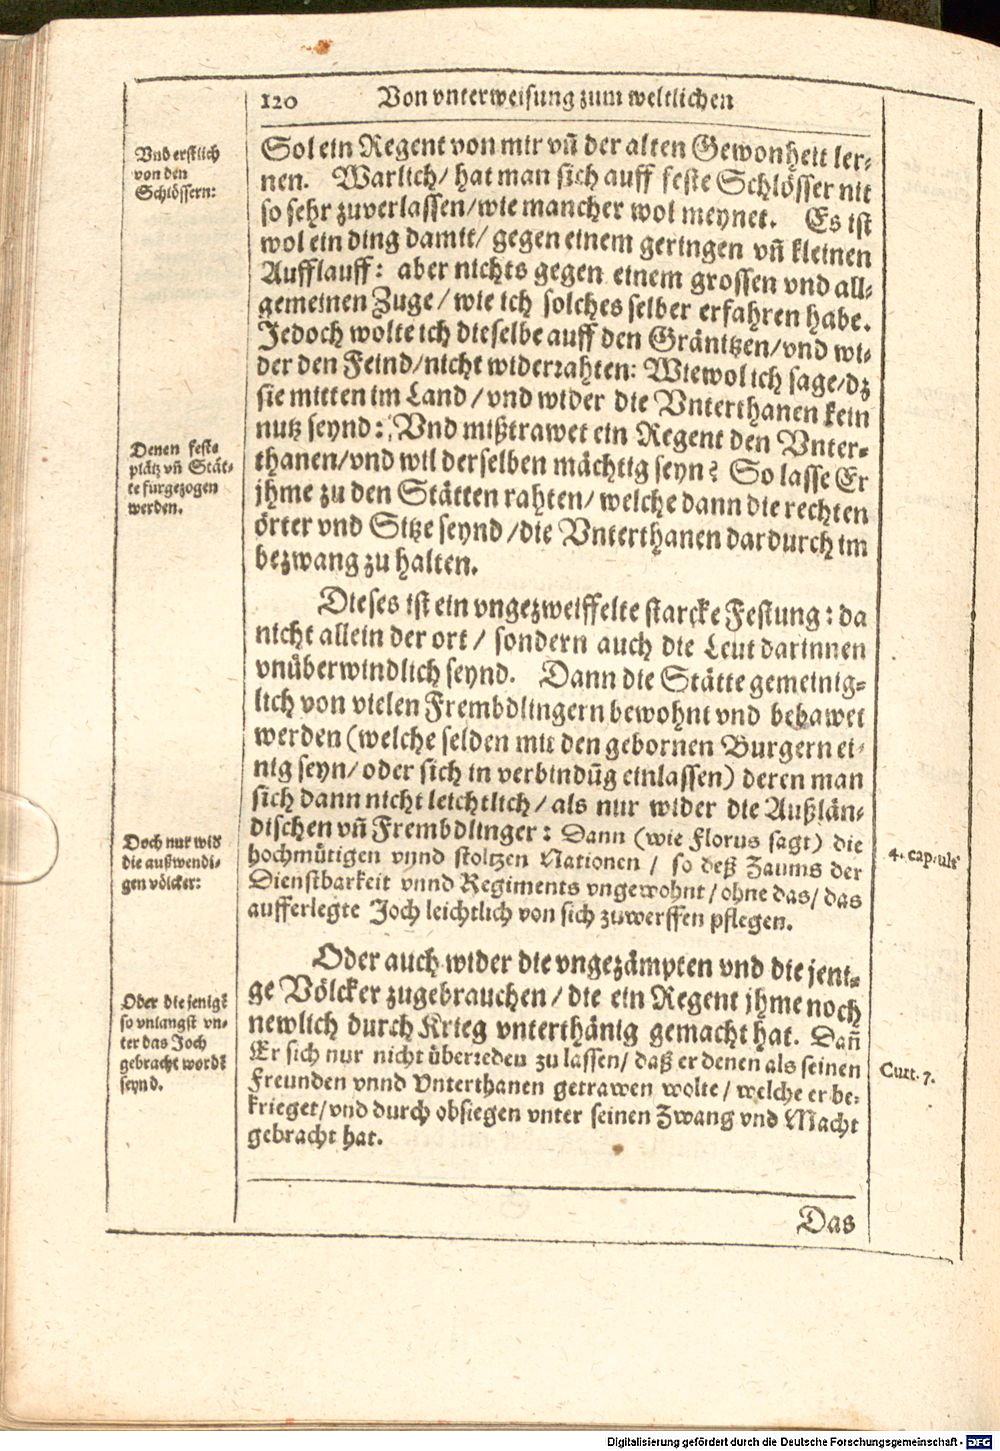 120 Von vnterweisung zum weltlichen
Vnd erstlich
von den
Schlössern:
Sol ein Regent von mir vñ der alten Gewonheit ler-
nen. Warlich/ hat man sich auff feste Schlösser nit
so sehr zuverlassen/wie mancher wol meynet. Es ist
wol ein ding damit/ gegen einem geringen vñ kleinen
Aufflauff: aber nichts gegen einem grossen vnd all-
gemeinen Zuge/ wie ich solches selber erfahren habe.
Jedoch wolte ich dieselbe auff den Gränitzen/vnd wi-
der den Feind/nicht widerrahten: Wiewol ich sage/dz
sie mitten im Land/ vnd wider die Vnterthanen kein
nutz seynd: Vnd mißtrawet ein Regent den Vnter-
thanen/vnd wil derselben mächtig seyn? So lasse Er
jhme zu den Stätten rahten/ welche dann die rechten
örter vnd Sitze seynd/die Vnterthanen dardurch im
bezwang zu halten.
Denen fest-
plätz vñ Stät-
te furgezogen
werden.
Dieses ist ein vngezweiffelte starcke Festung: da
nicht allein der ort/ sondern auch die Leut darinnen
vnüberwindlich seynd. Dann die Stätte gemeinig-
lich von vielen Frembdlingern bewohnt vnd bebawet
werden (welche selden mit den gebornen Burgern ei-
nig seyn/ oder sich in verbindūg einlassen) deren man
sich dann nicht leichtlich/ als nur wider die Außlän-
dischen vñ Frembdlinger: Dann (wie Florus sagt) die
hochmütigen vnnd stoltzen Nationen/ so deß Zaums der
Dienstbarkeit vnnd Regiments vngewohnt/ ohne das/ das
aufferlegte Joch leichtlich von sich zuwerffen pflegen.
Doch nur wid
die außwendi-
gen völcker:
Oder auch wider die vngezämpten vnd die jeni-
ge Völcker zugebrauchen/ die ein Regent jhme noch
newlich durch Krieg vnterthänig gemacht hat. Dañ
Er sich nur nicht überreden zu lassen/ daß er denen als seinen
Freunden vnnd Vnterthanen getrawen wolte/ welche er be-
krieget/vnd durch obsiegen vnter seinen Zwang vnd Macht
gebracht hat.
Oder die jenigē
so vnlangst vn-
ter das Joch
gebracht wordē
seynd.
Curt. 7.
Das
Digitalisierung gefördert durch die Deutsche Forschungsgemeinschaft - DFG